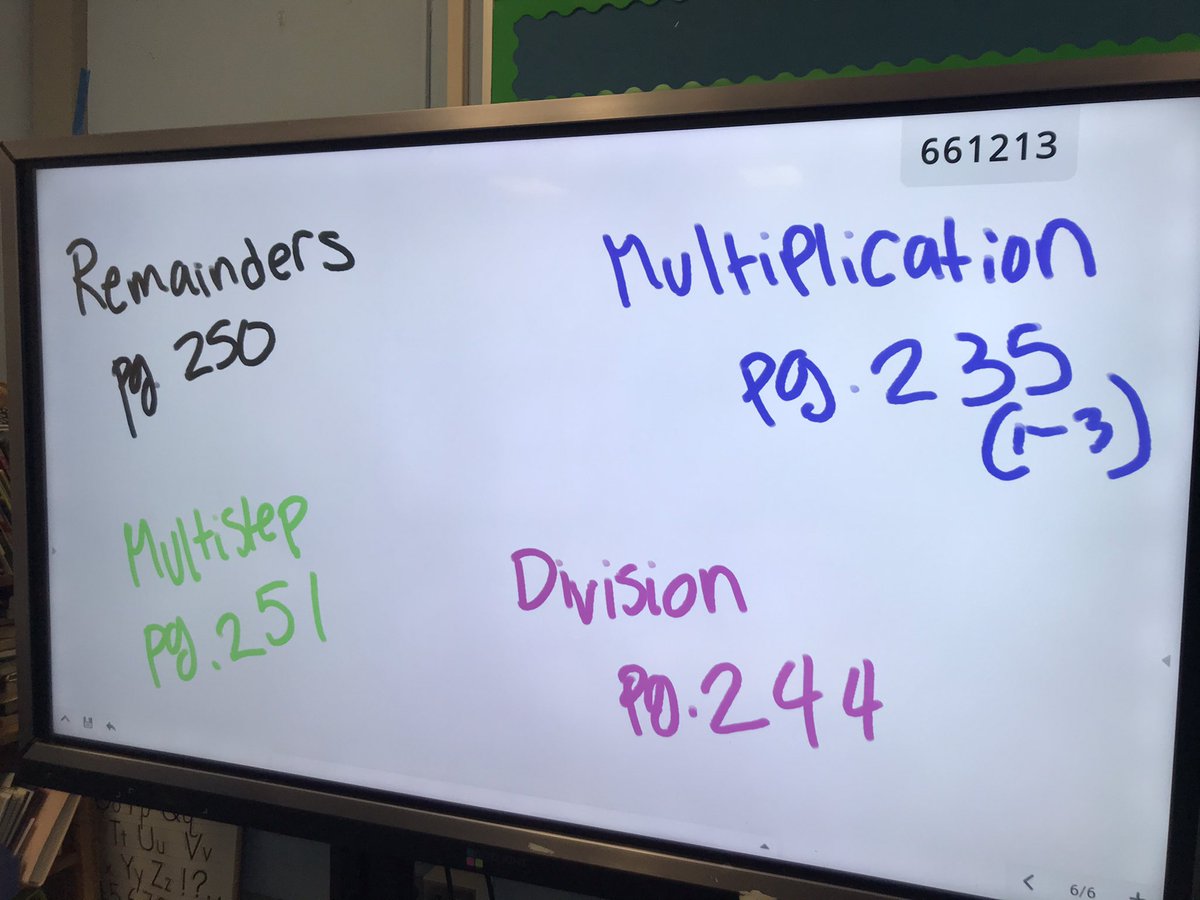 661213
Remainders
pg. 250
Multiplication
pg. 235
(1-3)
Multistep
pg. 251
Division
pg. 244
6/6
Tt Uu Vv
Yy Zz !?